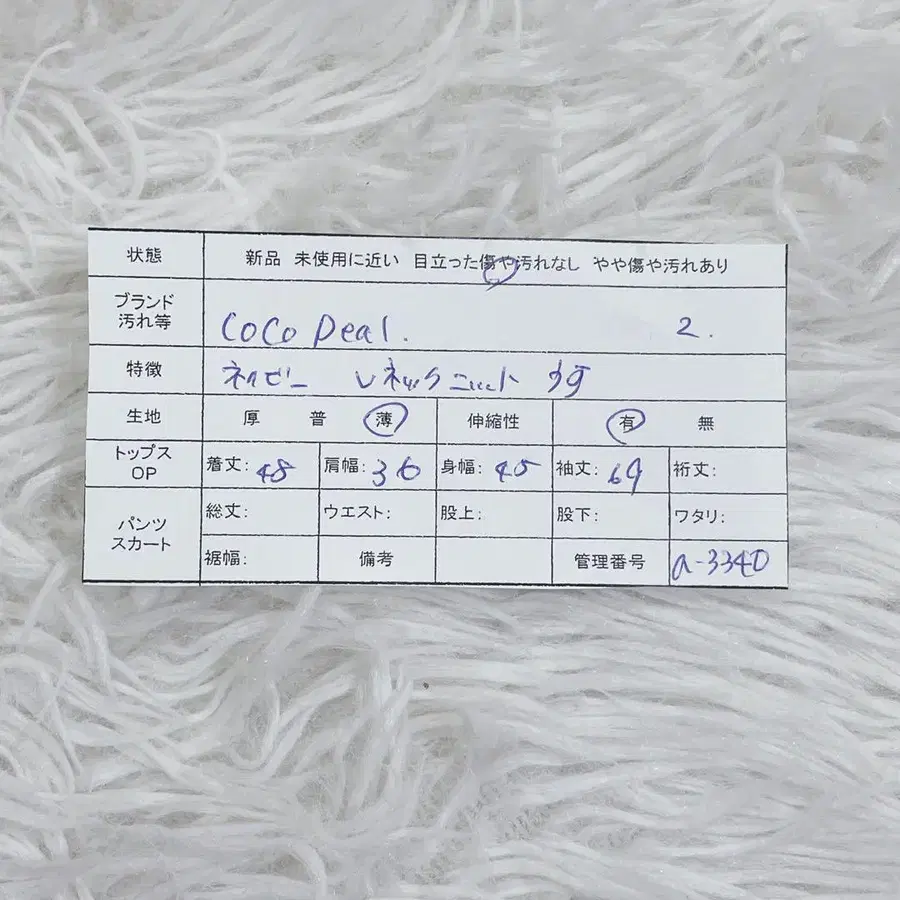 状態 新品 未使用に近い 目立った傷や汚れなし やや傷や汚れあり
ブランド
汚れ等 COCO Deal. 2.
特徴 ネイビー Vネックニット
生地 厚 普 薄 伸縮性 有 無
トップス
OP 着丈: 48 肩幅: 36 身幅: 45 袖丈: 69 裄丈:
パンツ
スカート 総丈: ウエスト: 股上: 股下: ワタリ:
裾幅: 備考 管理番号 a-3340